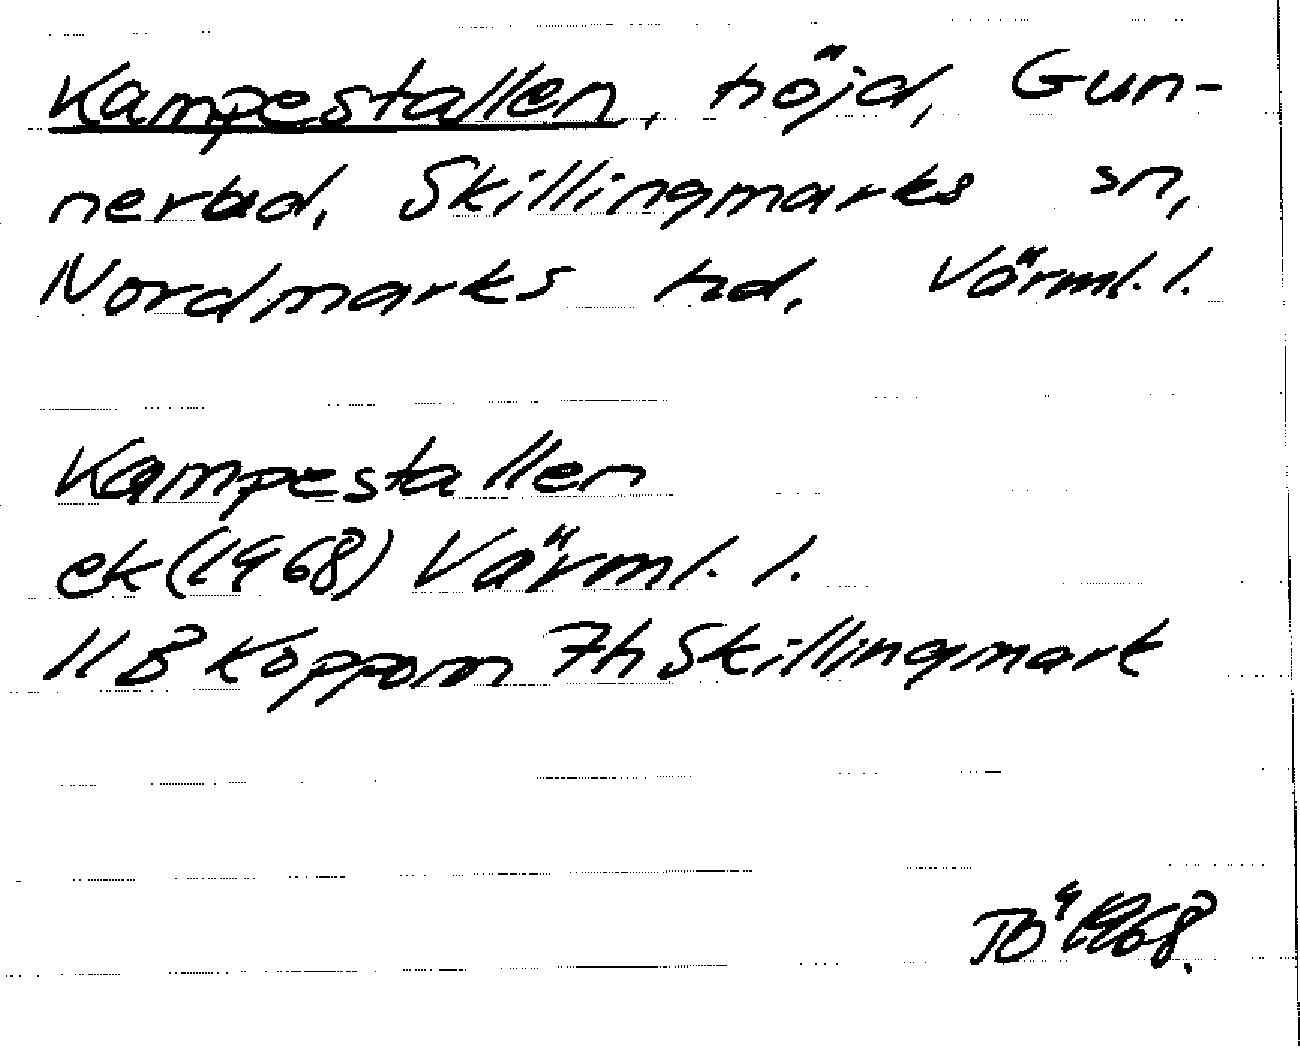 Kampestallen, höjd, Gun-
nerbud, Skillingmarks sn,
Nordmarks hd, Värml. l.
Kampestallen
ek (1968) Värml. l.
11B Koppom 7h Skillingmark
TÖ 1968.